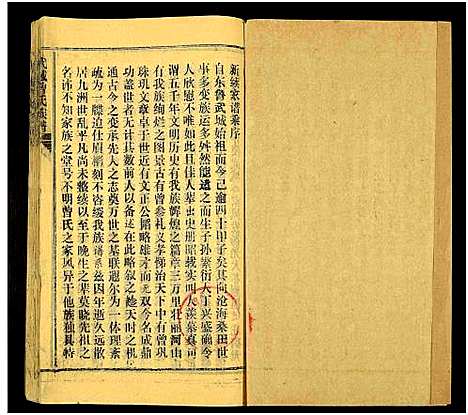 新续家谱乘序
自东鲁武城始祖而今已逾四十甲子矣其间沧海桑田世
事多变族运多舛然能遗之而生子孙繁衍人丁兴盛确令
人欣慰不唯如此且伟人辈出史册超载实叫人羡慕真可
谓五千年文明历史有我族辉煌之篇章三万里壮丽河山
有我族绚烂之图景古有曾参礼义孝悌治天下中有曾巩
珠玑文章卓于世近有文正公韬略雄才而无双今名成鼎
功盖世者无计其数前人以备述在此略叙之趁天时之机
通古今之变承先人之志奠万世之基联遐尔为一体理素
疏为一牒迫在眉梢刻不容缓我族谱系兹因年逝久远散
居九洲世乱平凡尚未整续以至于晚生之辈莫晓先祖之
名讳不知家族之堂号不明曾氏之家风异于他族独具特
武城曾氏族谱